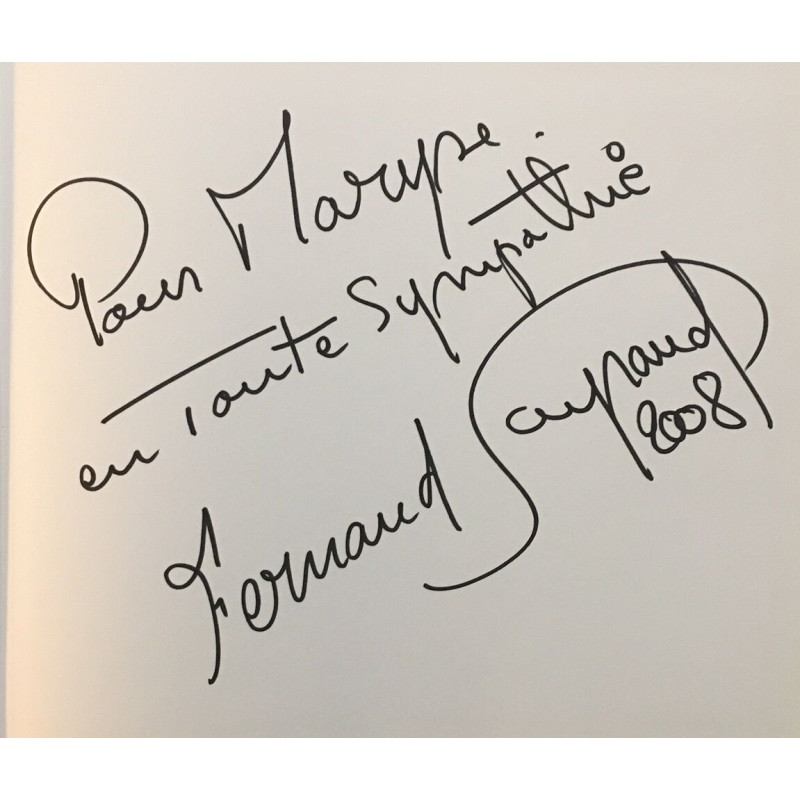 Pour Maryse.
en Toute Sympathie
Fernand
2008